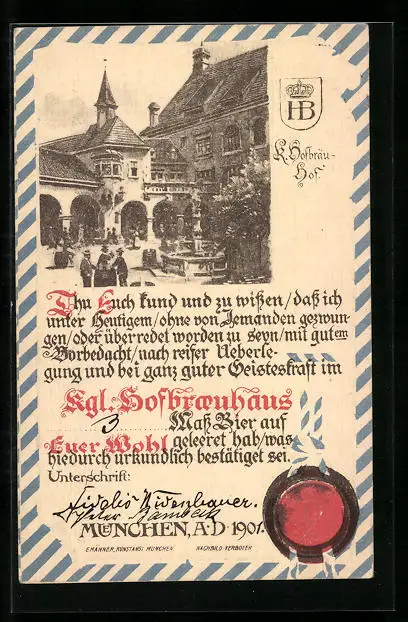 HB
K. Hofbräu-
Hof.
Thu Euch kund und zu wißen/daß ich
unter Heutigem/ohne von Jemanden gezwun-
gen/oder überredet worden zu seyn/mit gutem
Vorbedacht/nach reifer Ueberle-
gung und bei ganz guter Geisteskraft im
Kgl. Hofbræuhaus
3 Maß Bier auf
Euer Wohl geleeret hab/was
hiedurch urkundlich bestätiget sei.
Unterschrift:
MÜNCHEN, A·D·1901.
E. MÄNNER, KUNSTANST. MÜNCHEN. NACHBILD. VERBOTEN